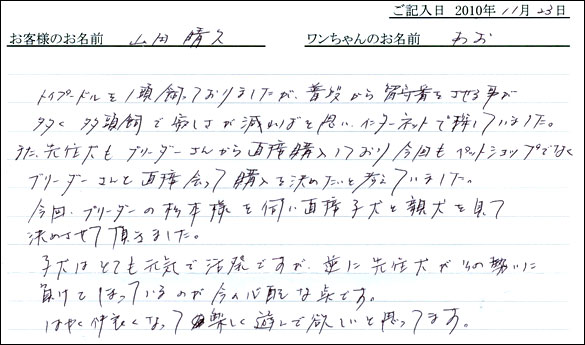 ご記入日 2010年 11月 23日
お客様のお名前 山田 晴久 ワンちゃんのお名前
トイプードルを1頭飼っておりましたが、普段から留守番をさせる事が
多く 多頭飼で寂しさが減ればと思い、インターネットで探していました。
また、先住犬もブリーダーさんから直接購入しており 今回もペットショップでなく
ブリーダーさんと直接会って購入を決めたいと考えていました。
今回、ブリーダーの松本様を伺い直接子犬と親犬を見て
決めさせて頂きました。
子犬はとても元気で活発ですが、逆に先住犬がその勢いに
負けてしまっているのが今の心配な点です。
はやく仲良くなって楽しく遊んで欲しいと思ってます。